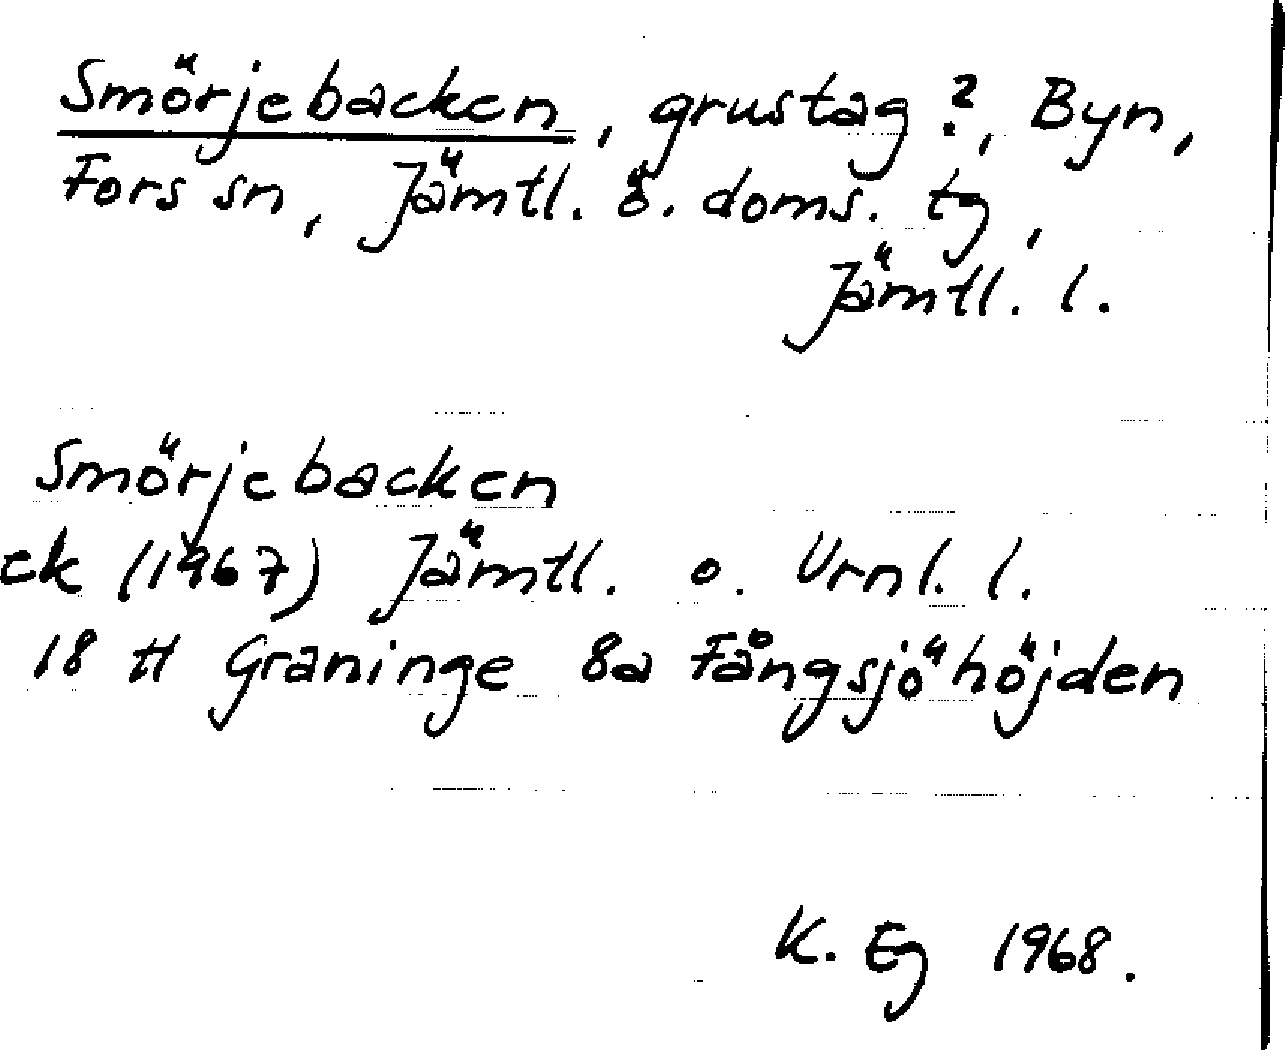 Smörjebacken, grustag?, Byn,
Fors sn, Jämtl. ö. doms. tg,
Jämtl. l.
Smörjebacken
ek (1967) Jämtl. o. Vrnl. l.
18 H Graninge 8a Fångsjöhöjden
K. Eg 1968.